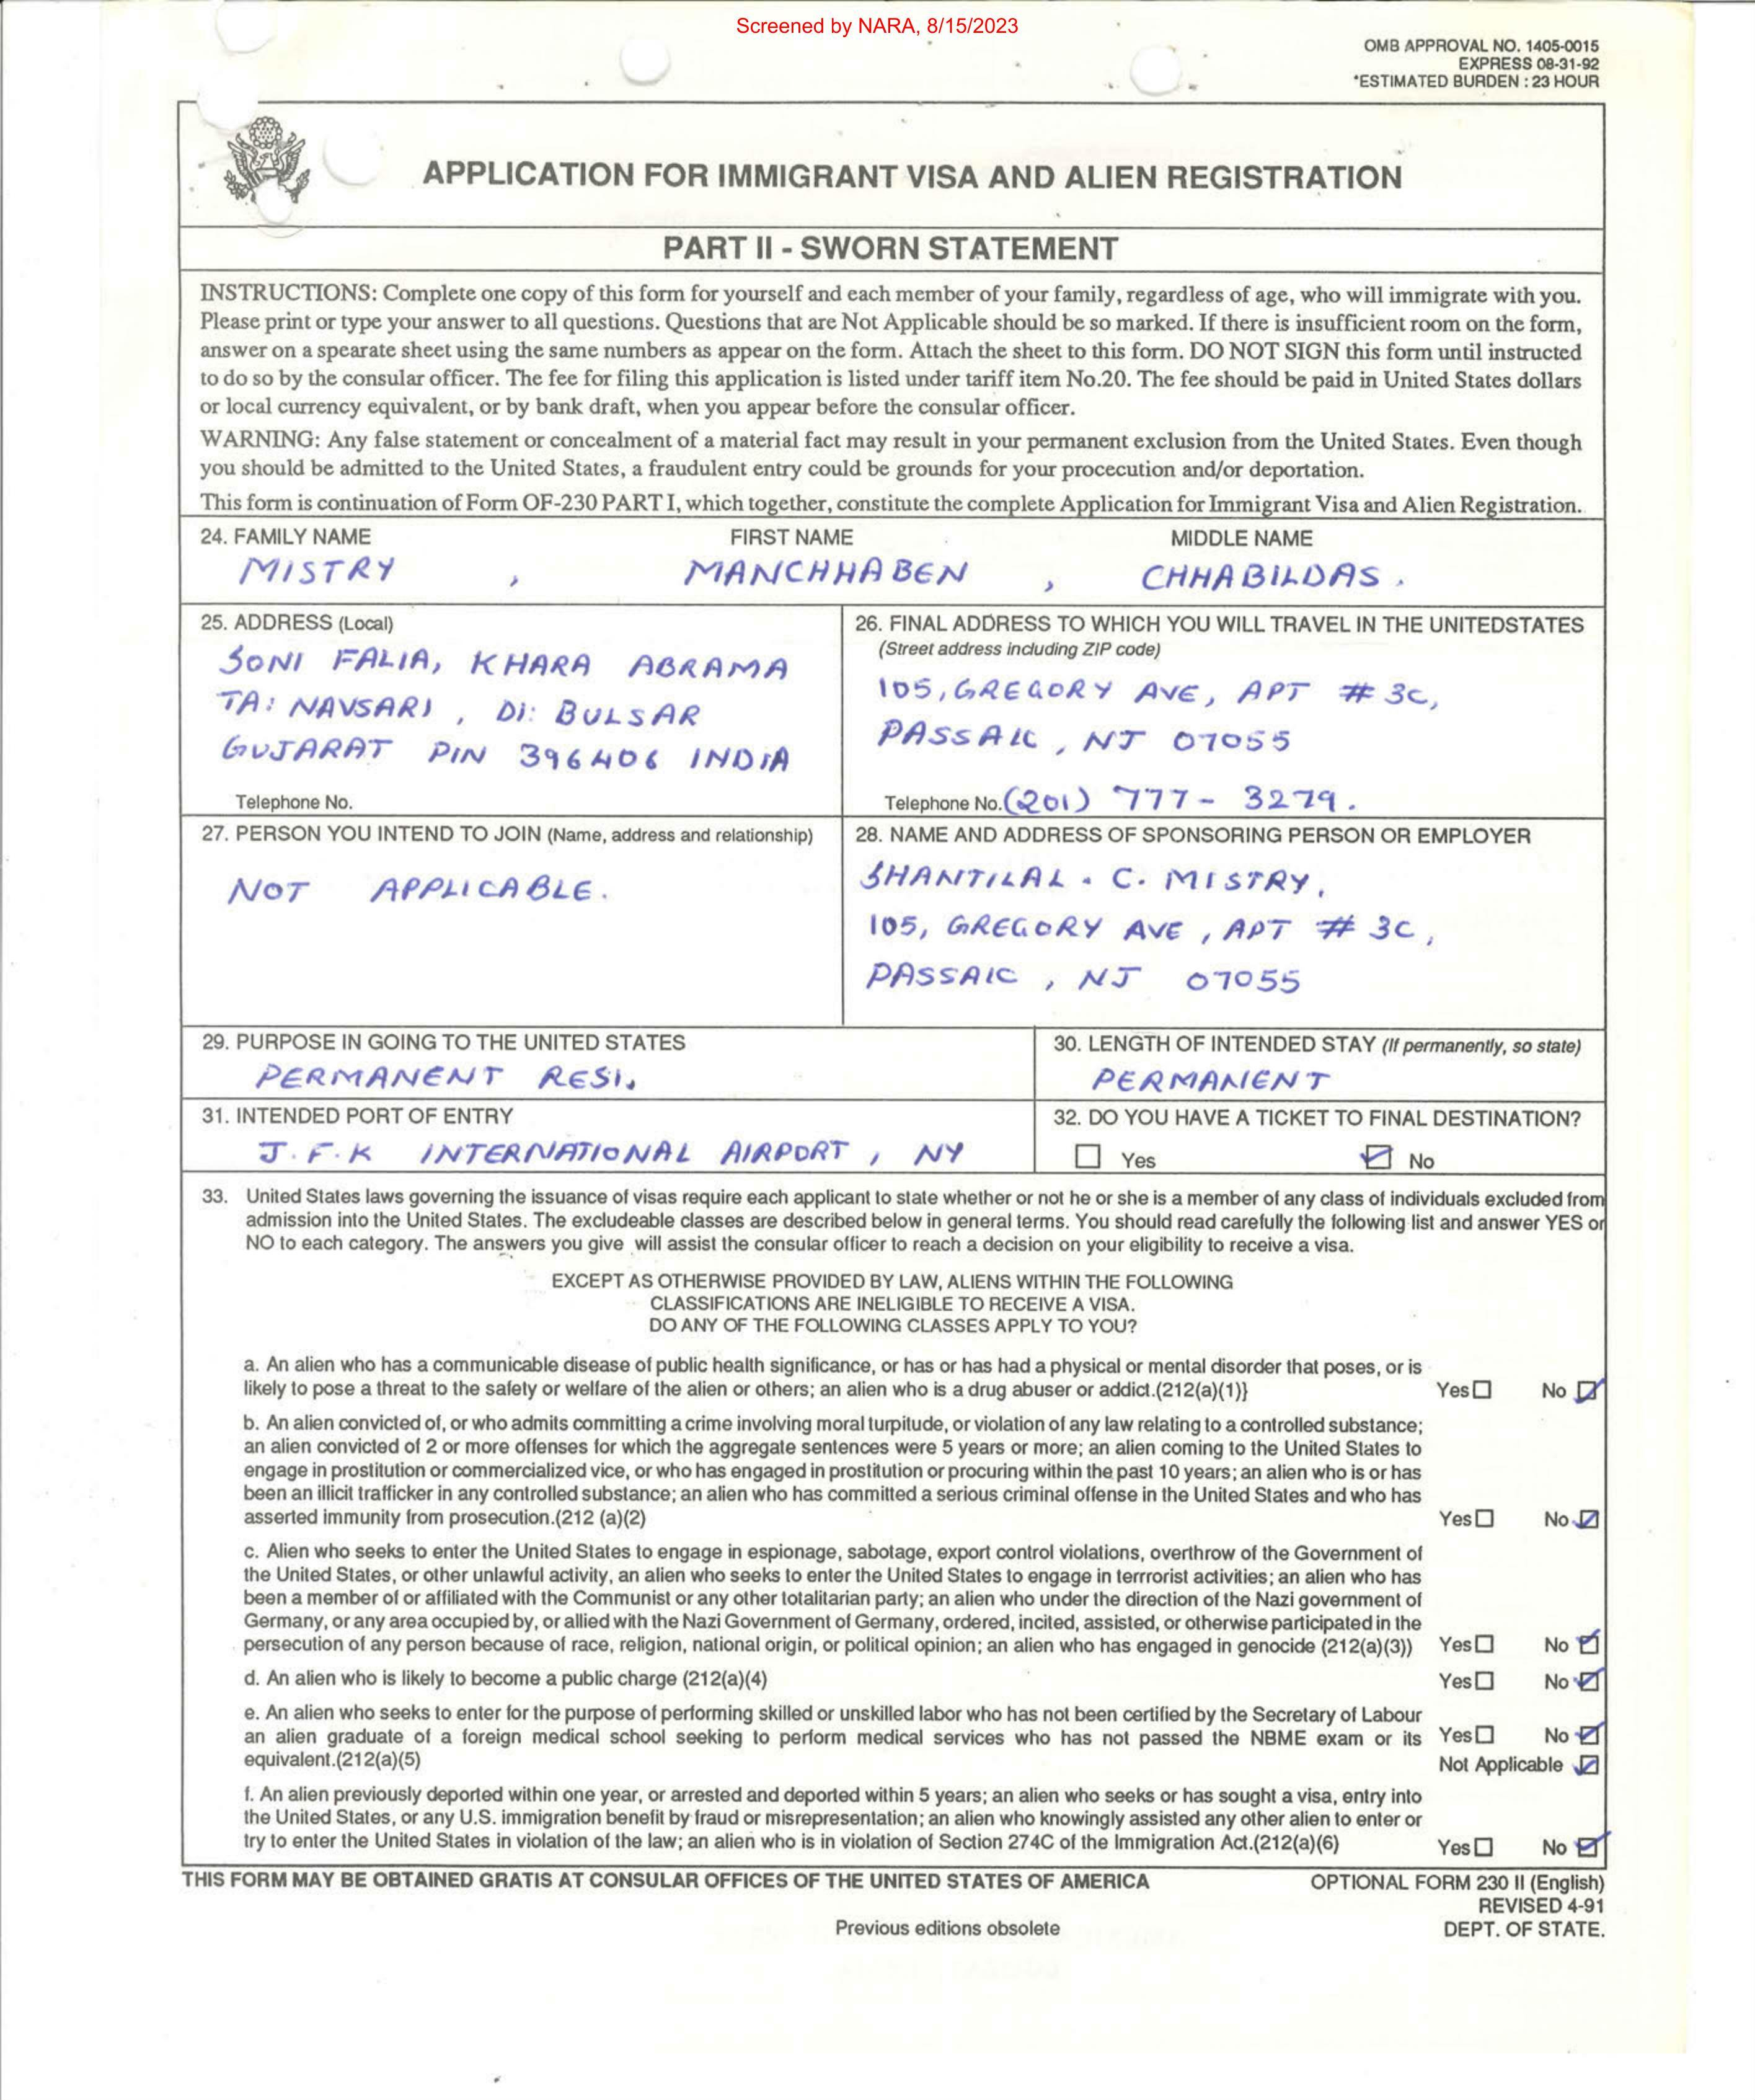 Screened by NARA, 8/15/2023
OMB APPROVAL NO. 1405-0015
EXPRESS 08-31-92
*ESTIMATED BURDEN : 23 HOUR
APPLICATION FOR IMMIGRANT VISA AND ALIEN REGISTRATION
PART II - SWORN STATEMENT
INSTRUCTIONS: Complete one copy of this form for yourself and each member of your family, regardless of age, who will immigrate with you.
Please print or type your answer to all questions. Questions that are Not Applicable should be so marked. If there is insufficient room on the form,
answer on a spearate sheet using the same numbers as appear on the form. Attach the sheet to this form. DO NOT SIGN this form until instructed
to do so by the consular officer. The fee for filing this application is listed under tariff item No.20. The fee should be paid in United States dollars
or local currency equivalent, or by bank draft, when you appear before the consular officer.
WARNING: Any false statement or concealment of a material fact may result in your permanent exclusion from the United States. Even though
you should be admitted to the United States, a fraudulent entry could be grounds for your procecution and/or deportation.
This form is continuation of Form OF-230 PART I, which together, constitute the complete Application for Immigrant Visa and Alien Registration.
24. FAMILY NAME FIRST NAME MIDDLE NAME
MISTRY , MANCHHABEN , CHHABILDAS .
25. ADDRESS (Local)
SONI FALIA, KHARA ABRAMA
TA: NAVSARI , DI: BULSAR
GUJARAT PIN 396406 INDIA
Telephone No.
26. FINAL ADDRESS TO WHICH YOU WILL TRAVEL IN THE UNITEDSTATES
(Street address including ZIP code)
105, GREGORY AVE, APT # 3C,
PASSAIC , NJ 07055
Telephone No. (201) 777 - 3279.
27. PERSON YOU INTEND TO JOIN (Name, address and relationship)
NOT APPLICABLE.
28. NAME AND ADDRESS OF SPONSORING PERSON OR EMPLOYER
SHANTILAL . C. MISTRY,
105, GREGORY AVE , APT # 3C ,
PASSAIC , NJ 07055
29. PURPOSE IN GOING TO THE UNITED STATES
PERMANENT RESI.
30. LENGTH OF INTENDED STAY (If permanently, so state)
PERMANENT
31. INTENDED PORT OF ENTRY
J.F.K INTERNATIONAL AIRPORT , NY
32. DO YOU HAVE A TICKET TO FINAL DESTINATION?
Yes No
33. United States laws governing the issuance of visas require each applicant to state whether or not he or she is a member of any class of individuals excluded from
admission into the United States. The excludeable classes are described below in general terms. You should read carefully the following list and answer YES or
NO to each category. The answers you give will assist the consular officer to reach a decision on your eligibility to receive a visa.
EXCEPT AS OTHERWISE PROVIDED BY LAW, ALIENS WITHIN THE FOLLOWING
CLASSIFICATIONS ARE INELIGIBLE TO RECEIVE A VISA.
DO ANY OF THE FOLLOWING CLASSES APPLY TO YOU?
a. An alien who has a communicable disease of public health significance, or has or has had a physical or mental disorder that poses, or is
likely to pose a threat to the safety or welfare of the alien or others; an alien who is a drug abuser or addict.(212(a)(1)} Yes No
b. An alien convicted of, or who admits committing a crime involving moral turpitude, or violation of any law relating to a controlled substance;
an alien convicted of 2 or more offenses for which the aggregate sentences were 5 years or more; an alien coming to the United States to
engage in prostitution or commercialized vice, or who has engaged in prostitution or procuring within the past 10 years; an alien who is or has
been an illicit trafficker in any controlled substance; an alien who has committed a serious criminal offense in the United States and who has
asserted immunity from prosecution.(212 (a)(2) Yes No
c. Alien who seeks to enter the United States to engage in espionage, sabotage, export control violations, overthrow of the Government of
the United States, or other unlawful activity, an alien who seeks to enter the United States to engage in terrrorist activities; an alien who has
been a member of or affiliated with the Communist or any other totalitarian party; an alien who under the direction of the Nazi government of
Germany, or any area occupied by, or allied with the Nazi Government of Germany, ordered, incited, assisted, or otherwise participated in the
persecution of any person because of race, religion, national origin, or political opinion; an alien who has engaged in genocide (212(a)(3)) Yes No
d. An alien who is likely to become a public charge (212(a)(4) Yes No
e. An alien who seeks to enter for the purpose of performing skilled or unskilled labor who has not been certified by the Secretary of Labour
an alien graduate of a foreign medical school seeking to perform medical services who has not passed the NBME exam or its Yes No
equivalent.(212(a)(5) Not Applicable
f. An alien previously deported within one year, or arrested and deported within 5 years; an alien who seeks or has sought a visa, entry into
the United States, or any U.S. immigration benefit by fraud or misrepresentation; an alien who knowingly assisted any other alien to enter or
try to enter the United States in violation of the law; an alien who is in violation of Section 274C of the Immigration Act.(212(a)(6) Yes No
THIS FORM MAY BE OBTAINED GRATIS AT CONSULAR OFFICES OF THE UNITED STATES OF AMERICA OPTIONAL FORM 230 II (English)
REVISED 4-91
Previous editions obsolete DEPT. OF STATE.